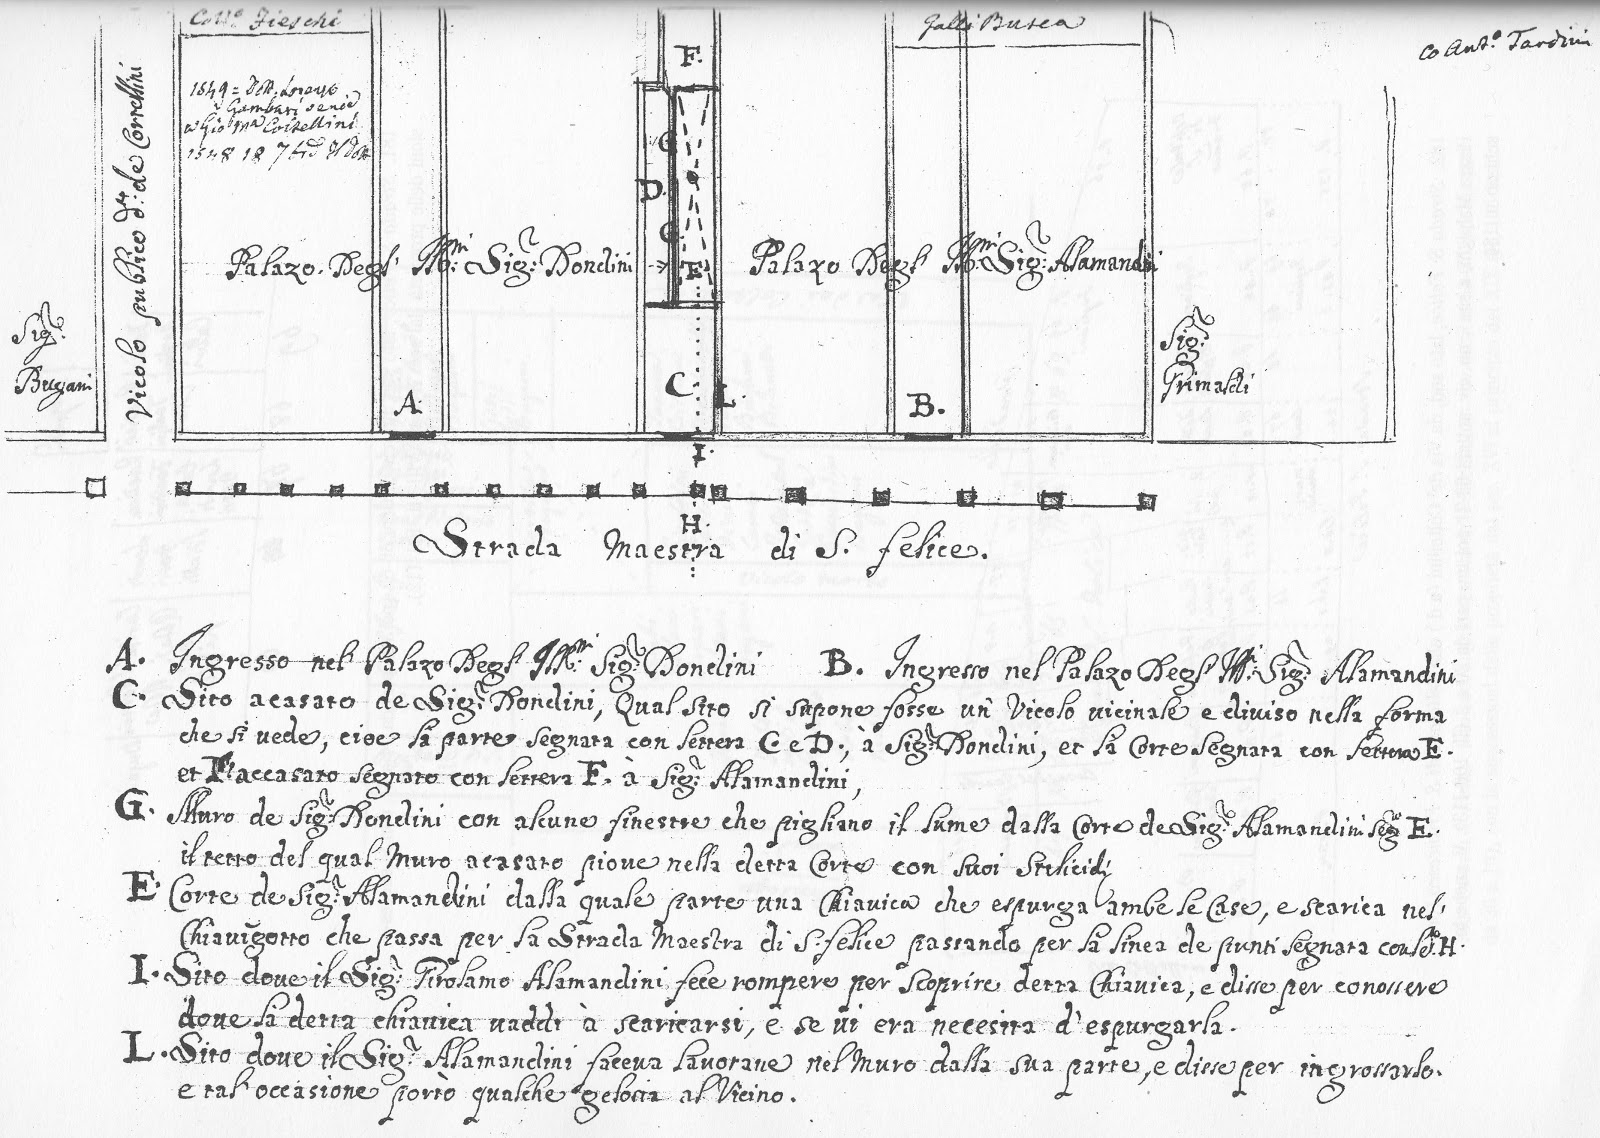 Fieschi
Galli Busca
Co Ant.º Tardini
1549 = Dott. Lorenzo
Gambari
Gio Ma Costellini
1548 18 7
Vicolo publico d.º de Correllini
F.
G
D.
G.
E
Palazo Degl' Ill.mi Sig.ri Dondini
Palazo Degl' Ill.mi Sig.ri Alamandini
Sig.ri
Bugani
Sig.ri
Grimaldi
A
C
L.
B.
I.
H.
Strada Maestra di S. felice.
A. Ingresso nel Palazo Degl' Ill.mi Sig.ri Dondini B. Ingresso nel Palazo Degl' Ill.mi Sig.ri Alamandini
C. Sito acasato de Sig.ri Dondini, Qual sito si supone fosse un' Vicolo vicinale e diviso nella forma
che si vede, cioe la parte segnata con lettera C e D., à Sig.ri Dondini, et la Corte segnata con lettera E.
et l'accasato segnato con lettera F. à Sig.ri Alamandini,
G. Muro de Sig.ri Dondini con alcune finestre che pigliano il lume dalla Corte de Sig.ri Alamandini seg.ta E.
il tetto del qual Muro acasato piove nella detta Corte con suoi Stilicidi
E Corte de Sig.ri Alamandini dalla quale parte una Chiavica che espurga ambe le Case, e scarica nel'
Chiavigotto che passa per la Strada Maestra di S. felice passando per la linea de punti segnata H.
I. Sito dove il Sig.r Girolamo Alamandini fece rompere per scoprire detta Chiavica, e disse per conossere
dove la detta chiavica vaddi à scaricarsi, e se vi era necesita d'espurgarla.
L. Sito dove il Sig.r Alamandini faceva lavorare nel Muro dalla sua parte, e disse per ingrossarlo.
e tal' occasione portò qualche gelosia al Vicino.